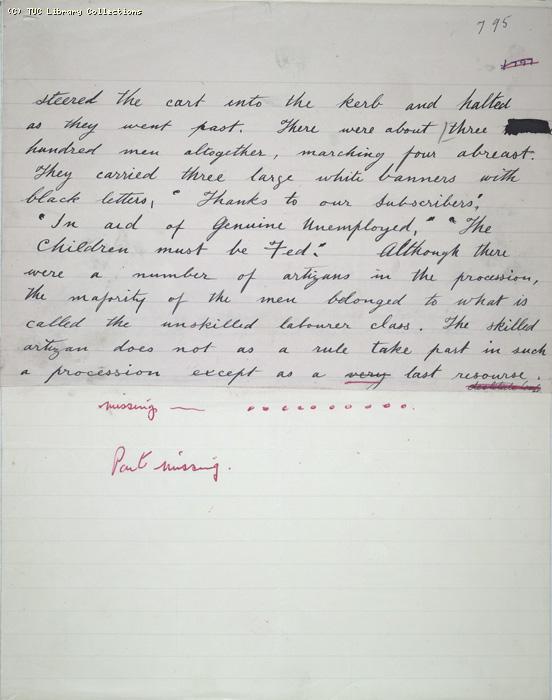 (C) TUC Library Collections
795
steered the cart into the kerb and halted
as they went past. There were about three
hundred men altogether, marching four abreast.
They carried three large white banners with
black letters, "Thanks to our subscribers",
"In aid of Genuine Unemployed," "The
Children must be Fed". Although there
were a number of artizans in the procession,
the majority of the men belonged to what is
called the unskilled labourer class. The skilled
artizan does not as a rule take part in such
a procession except as a very last resourse.
missing — ...........
Part missing.